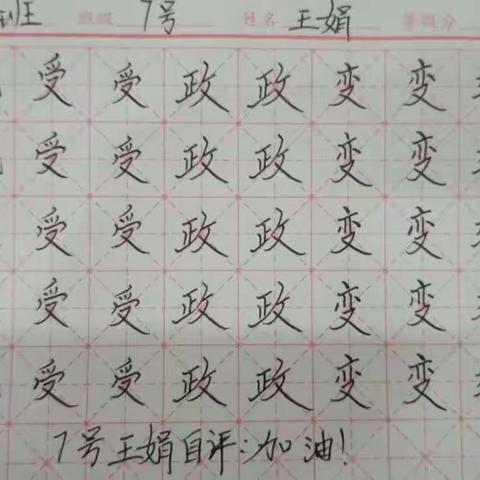 班级 7号 姓名 王娟 等级分
受 受 政 政 变 变
受 受 政 政 变 变
受 受 政 政 变 变
受 受 政 政 变 变
受 受 政 政 变 变
7号王娟自评:加油!